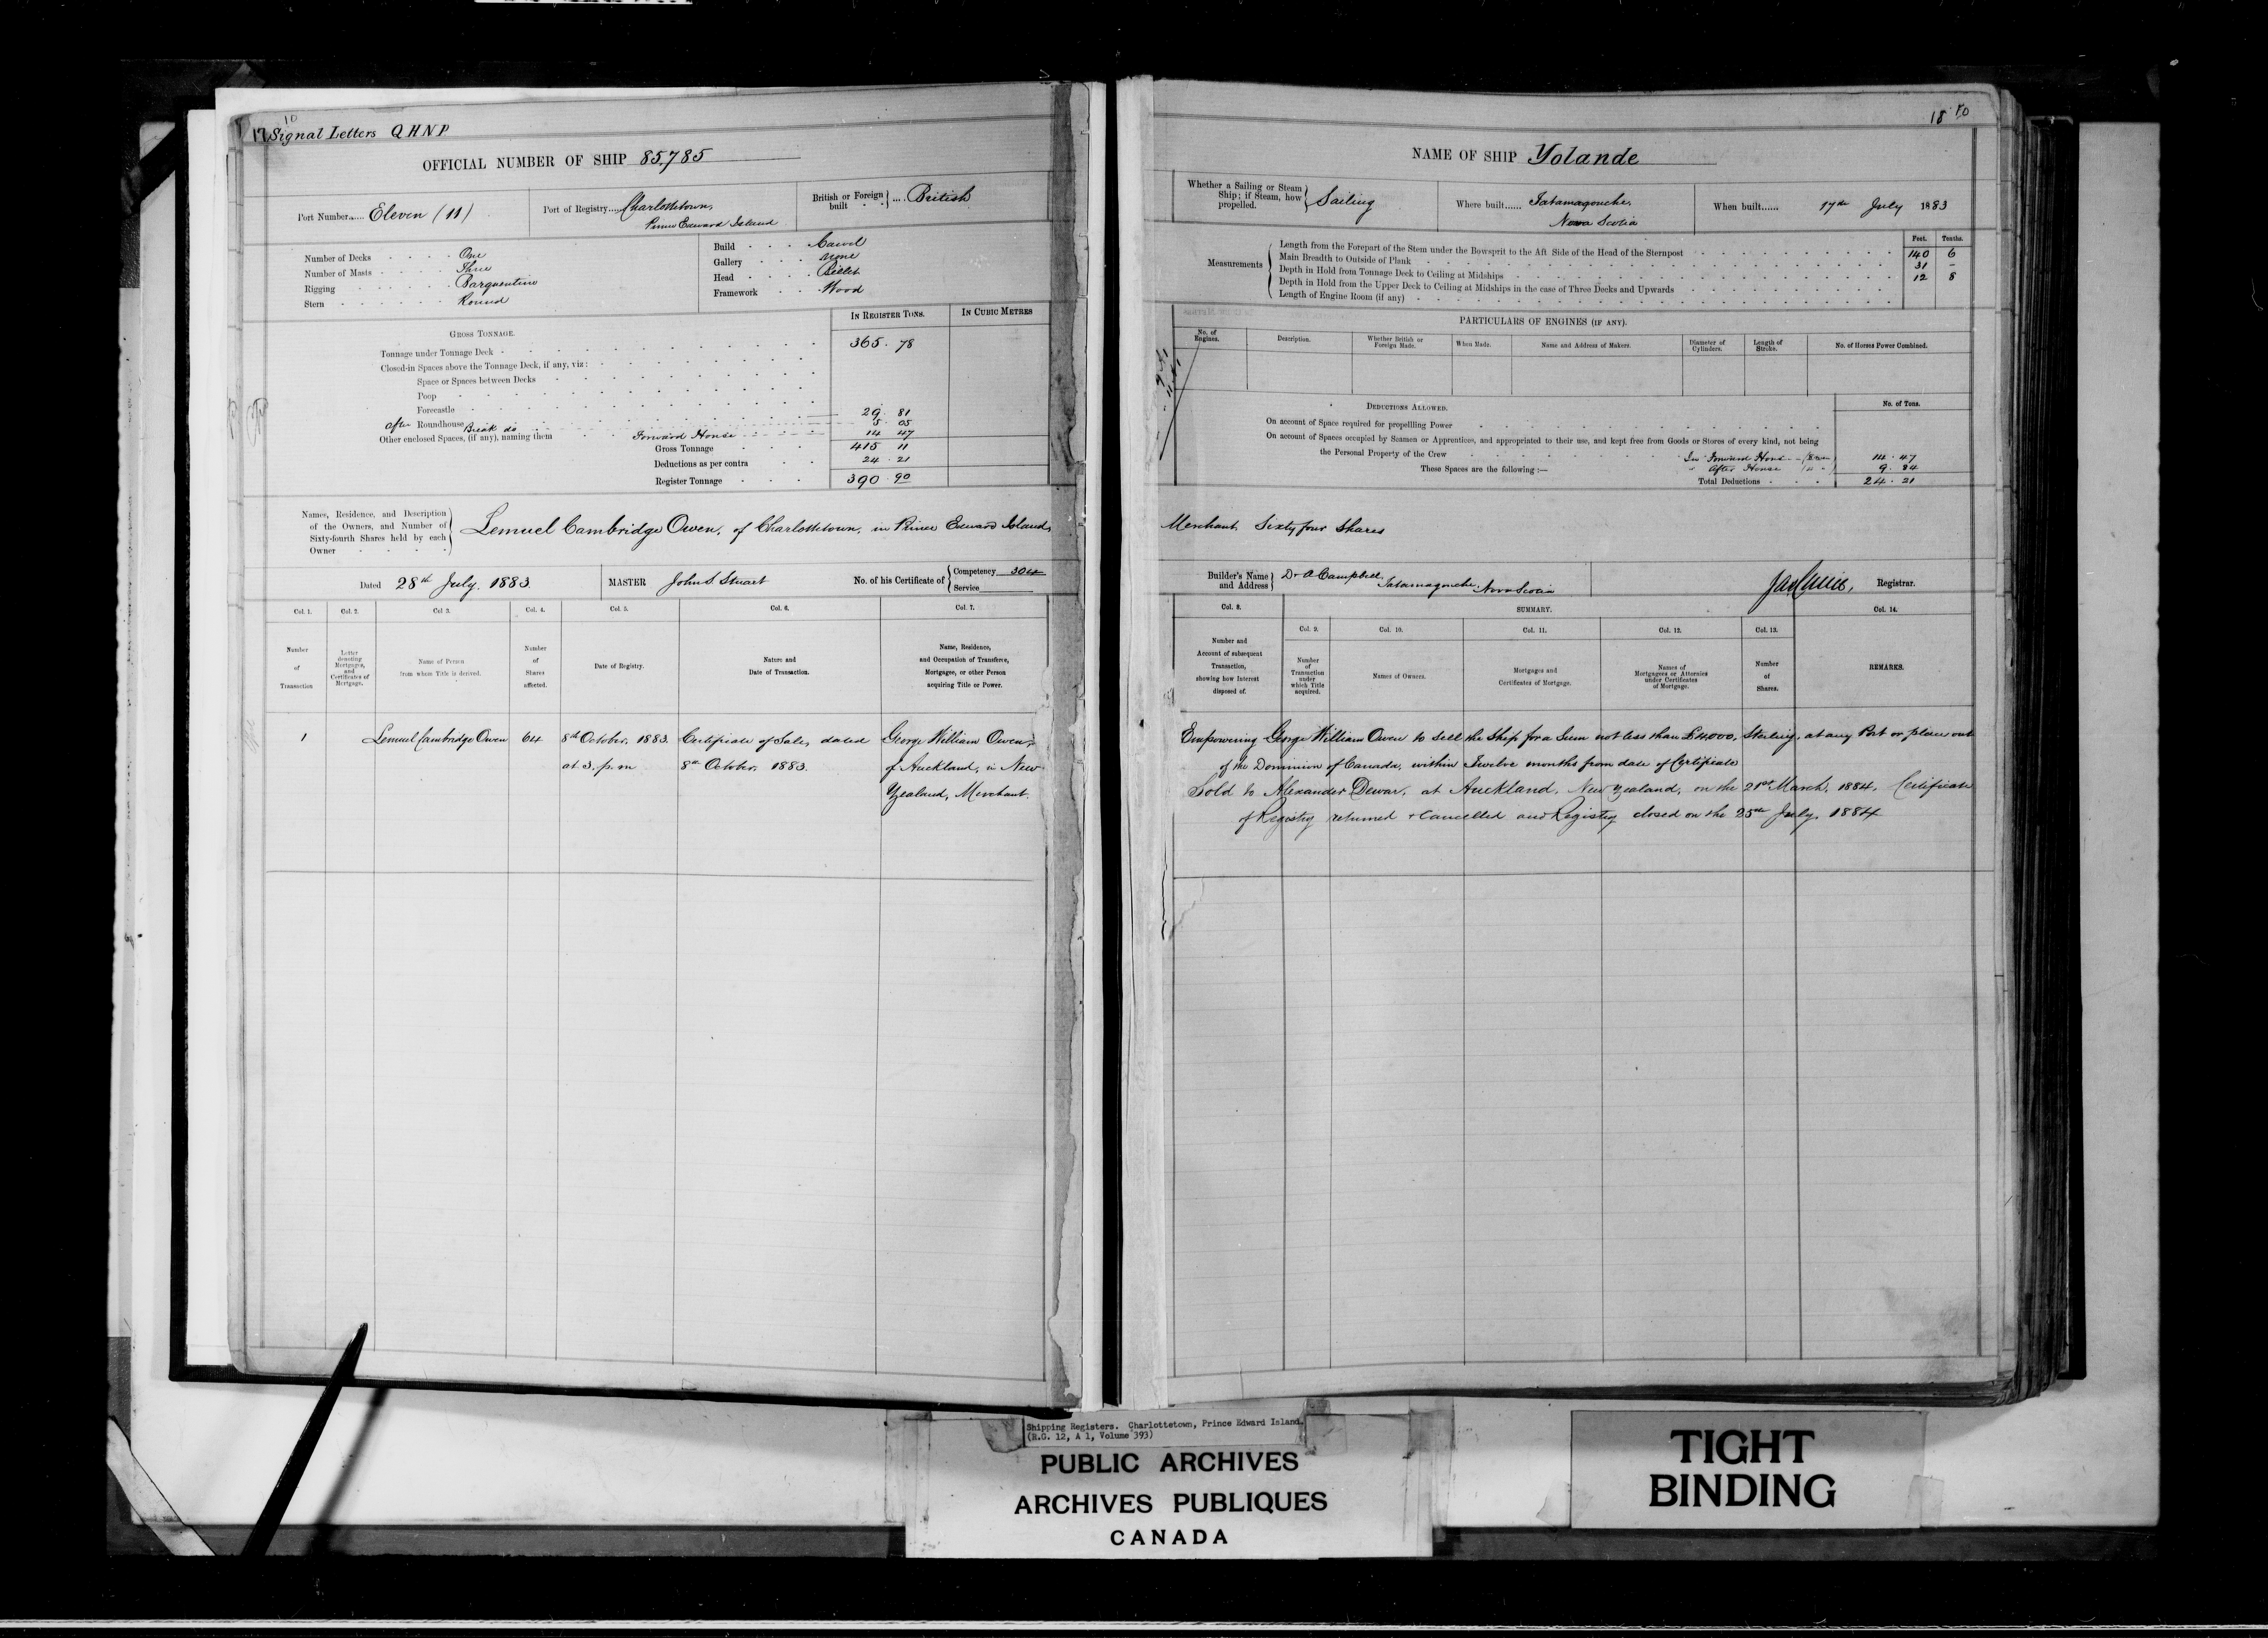 10
17 Signal Letters QHNP
OFFICIAL NUMBER OF SHIP 85,785
Port Number..... Eleven (11)
Port of Registry.... Charlottetown,
Prince Edward Island
British or Foreign built ... British
Number of Decks One
Number of Masts Three
Rigging Barquentine
Stern Round
Build Carvel
Gallery None
Head Billet
Framework Wood
GROSS TONNAGE.
IN REGISTER TONS.
IN CUBIC METRES
Tonnage under Tonnage Deck 365.78
Closed-in Spaces above the Tonnage Deck, if any, viz:
Space or Spaces between Decks
Poop
Forecastle
after Roundhouse 29.81
Break do 5.05
Other enclosed Spaces, (if any), naming them Forward House 14 47
Gross Tonnage 415 11
Deductions as per contra 24.21
Register Tonnage 390.90
Names, Residence, and Description
of the Owners, and Number of
Sixty-fourth Shares held by each
Owner
Lemuel Cambridge Owen, of Charlottetown, in Prince Edward Island,
Dated 28th July. 1883
MASTER John S. Stuart
No. of his Certificate of Competency 304
Service
Col. 1. Col. 2. Col 3. Col. 4. Col. 5. Col. 6. Col. 7.
Number of Transaction
Letter denoting Mortgages, and Certificates of Mortgage.
Name of Person from whom Title is derived.
Number of Shares affected.
Date of Registry.
Nature and Date of Transaction.
Name, Residence, and Occupation of Transferee, Mortgagee, or other Person acquiring Title or Power.
1 Lemuel Cambridge Owen 64 8th October. 1883. Certificate of Sale, dated George William Owen,
at 3. p.m 8th October. 1883. of Auckland, in New
Zealand, Merchant.
18
NAME OF SHIP Yolande
Whether a Sailing or Steam Ship; if Steam, how propelled. Sailing
Where built...... Tatamagouche,
Nova Scotia
When built...... 17th July 1883
Measurements
Feet. Tenths.
Length from the Forepart of the Stem under the Bowsprit to the Aft Side of the Head of the Sternpost 140 6
Main Breadth to Outside of Plank 31 -
Depth in Hold from Tonnage Deck to Ceiling at Midships 12 8
Depth in Hold from the Upper Deck to Ceiling at Midships in the case of Three Decks and Upwards
Length of Engine Room (if any)
PARTICULARS OF ENGINES (IF ANY).
No. of Engines.
Description.
Whether British or Foreign Made.
When Made.
Name and Address of Makers.
Diameter of Cylinders.
Length of Stroke.
No. of Horses Power Combined.
DEDUCTIONS ALLOWED.
No. of Tons.
On account of Space required for propelling Power
On account of Spaces occupied by Seamen or Apprentices, and appropriated to their use, and kept free from Goods or Stores of every kind, not being
the Personal Property of the Crew In Forward House 14.47
These Spaces are the following :— " After House
Total Deductions 24.21
Merchant Sixty four Shares
Builder's Name and Address
Campbell,
Tatamagouche, Nova Scotia
Registrar.
Col. 8. SUMMARY. Col. 14.
Col. 9. Col. 10. Col. 11. Col. 12. Col. 13.
Number and Account of subsequent Transaction, showing how Interest disposed of.
Number of Transaction under which Title acquired.
Names of Owners.
Mortgages and Certificates of Mortgage.
Names of Mortgagees or Attornies under Certificates of Mortgage.
Number of Shares.
REMARKS.
Empowering George William Owen to sell the Ship for a Sum not less than £4000, Sterling, at any Port or place out
of the Dominion of Canada, within Twelve months from date of Certificate
Sold to Alexander Dewar, at Auckland, New Zealand, on the 21st March, 1884. Certificate
of Registry returned + Cancelled and Registry closed on the 25th July, 1884
Shipping Registers. Charlottetown, Prince Edward Island.
(R.G. 12, A 1, Volume 393)
PUBLIC ARCHIVES
ARCHIVES PUBLIQUES
CANADA
TIGHT
BINDING